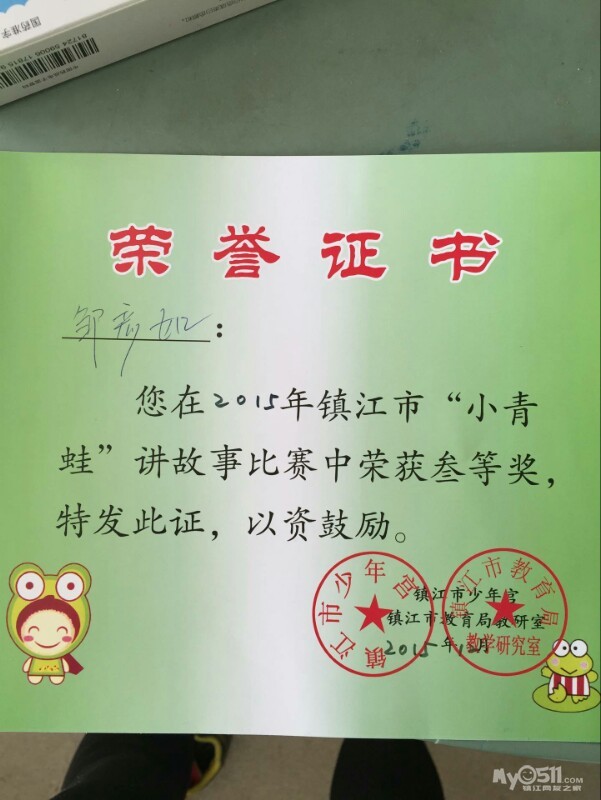 国药准字
81724 59006 17815 9
荣誉证书
邹彦如：
您在2015年镇江市“小青
蛙”讲故事比赛中荣获叁等奖，
特发此证，以资鼓励。
镇江市少年宫
镇江市教育局
教学研究室
镇江市少年宫
镇江市教育局教研室
2015年12月
My0511.COM
镇江网友之家